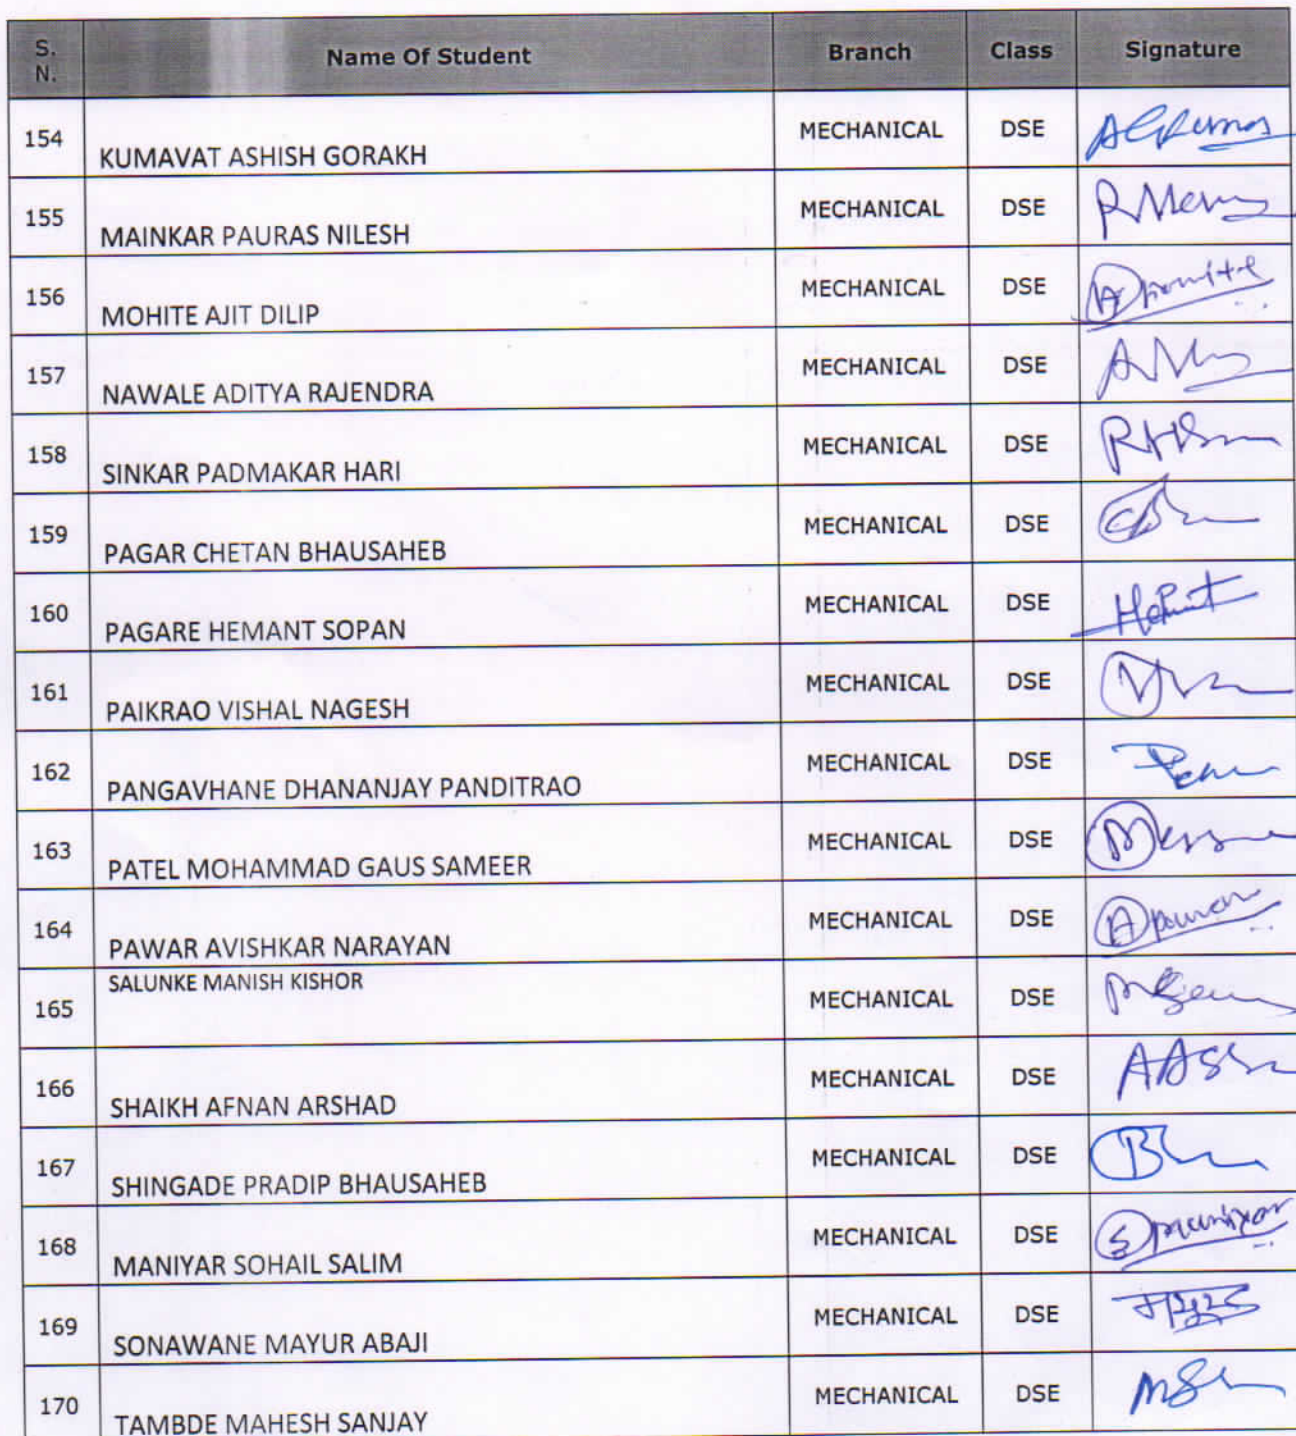 S. N. Name Of Student Branch Class Signature
154 KUMAVAT ASHISH GORAKH MECHANICAL DSE
155 MAINKAR PAURAS NILESH MECHANICAL DSE
156 MOHITE AJIT DILIP MECHANICAL DSE
157 NAWALE ADITYA RAJENDRA MECHANICAL DSE
158 SINKAR PADMAKAR HARI MECHANICAL DSE
159 PAGAR CHETAN BHAUSAHEB MECHANICAL DSE
160 PAGARE HEMANT SOPAN MECHANICAL DSE
161 PAIKRAO VISHAL NAGESH MECHANICAL DSE
162 PANGAVHANE DHANANJAY PANDITRAO MECHANICAL DSE
163 PATEL MOHAMMAD GAUS SAMEER MECHANICAL DSE
164 PAWAR AVISHKAR NARAYAN MECHANICAL DSE
165 SALUNKE MANISH KISHOR MECHANICAL DSE
166 SHAIKH AFNAN ARSHAD MECHANICAL DSE
167 SHINGADE PRADIP BHAUSAHEB MECHANICAL DSE
168 MANIYAR SOHAIL SALIM MECHANICAL DSE
169 SONAWANE MAYUR ABAJI MECHANICAL DSE
170 TAMBDE MAHESH SANJAY MECHANICAL DSE